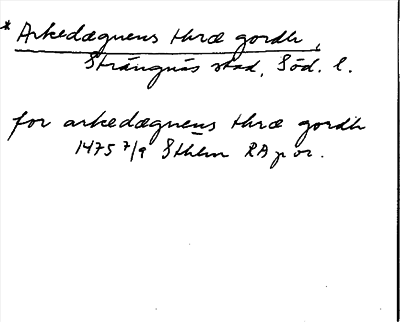 * Arkedægnens thræ gordh,
Strängnäs stad, Söd. l.
for arkedægnens thræ gordh
1475 7/9 Sthlm RA p or.